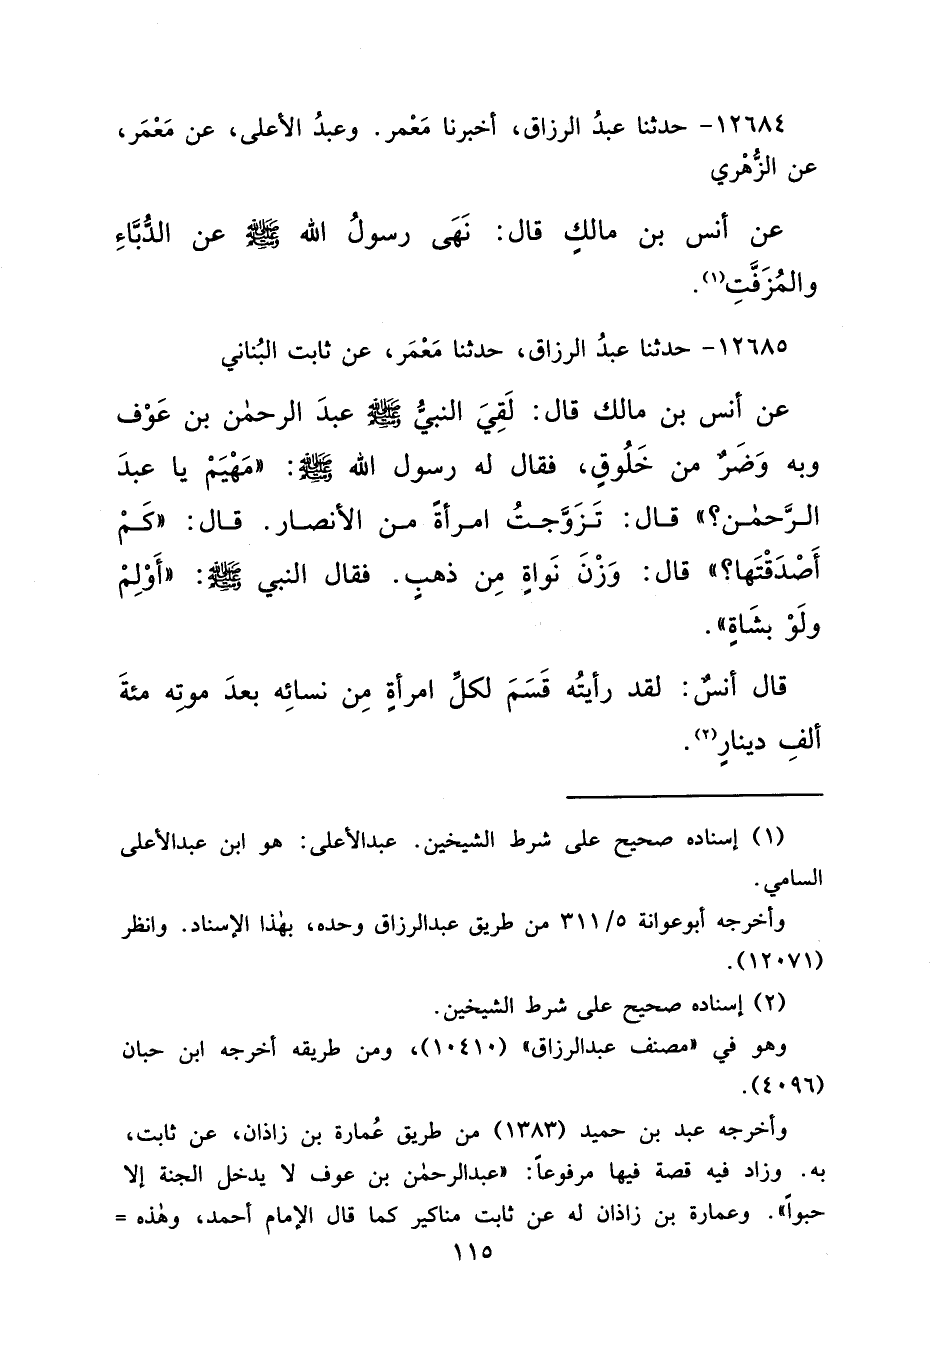 ١٢٦٨٤- حدثنا عبدُ الرزاق، أخبرنا مَعْمر. وعبدُ الأعلى، عن مَعْمَر،
عن الزُّهْري
عن أنس بن مالكٍ قال: نَهَى رسولُ الله ﷺ عن الدُّبَّاءِ
والمُزَفَّتِ(١).
١٢٦٨٥- حدثنا عبدُ الرزاق، حدثنا مَعْمَر، عن ثابت البُناني
عن أنس بن مالك قال: لَقِيَ النبيُّ ﷺ عبدَ الرحمٰن بن عَوْف
وبه وَضَرٌ من خَلُوقٍ، فقال له رسول الله ﷺ: «مَهْيَمْ يا عبدَ
الرَّحمٰن؟» قال: تَزَوَّجتُ امرأةً من الأنصار. قال: «كَمْ
أَصْدَقْتَها؟» قال: وَزْنَ نَواةٍ مِن ذهبٍ. فقال النبي ﷺ: «أَوْلِمْ
ولَوْ بشَاةٍ».
قال أنسٌ: لقد رأيتُه قَسَمَ لكلِّ امرأةٍ مِن نسائِه بعدَ موتِه مئةَ
ألفِ دينارٍ(٢).
(١) إسناده صحيح على شرط الشيخين. عبدالأعلى: هو ابن عبدالأعلى
السامي.
وأخرجه أبوعوانة ٣١١/٥ من طريق عبدالرزاق وحده، بهٰذا الإسناد. وانظر
(١٢٠٧١).
(٢) إسناده صحيح على شرط الشيخين.
وهو في «مصنف عبدالرزاق» (١٠٤١٠)، ومن طريقه أخرجه ابن حبان
(٤٠٩٦).
وأخرجه عبد بن حميد (١٣٨٣) من طريق عُمارة بن زاذان، عن ثابت،
به. وزاد فيه قصة فيها مرفوعاً: «عبدالرحمٰن بن عوف لا يدخل الجنة إلا
حبواً». وعمارة بن زاذان له عن ثابت مناكير كما قال الإمام أحمد، وهٰذه =
١١٥